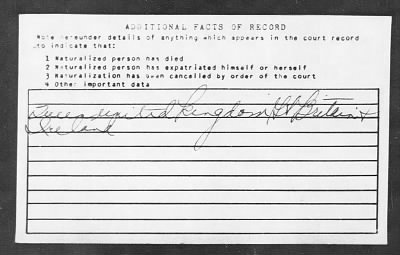 ADDITIONAL FACTS OF RECORD
Note hereunder details of anything which appears in the court record
to indicate that:
1 Naturalized person has died
2 Naturalized person has expatriated himself or herself
3 Naturalization has been cancelled by order of the court
4 Other important data
Queen United Kingdom Gt Britain &
Ireland